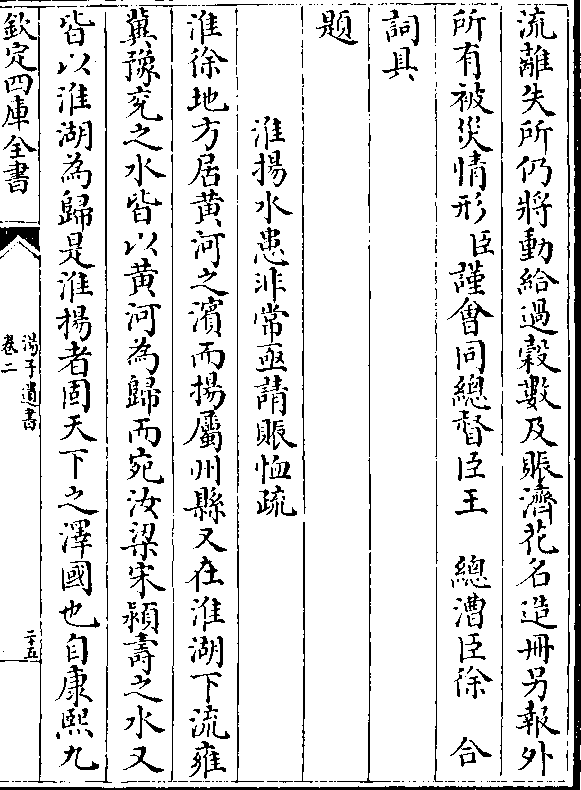 流離失所仍將動給過穀數及賑濟花名造冊另報外
所有被災情形臣謹會同總督臣王　總漕臣徐　合
詞具
題
淮揚水患非常亟請賑恤疏
淮徐地方居黄河之濱而揚屬州縣又在淮湖下流雍
冀豫兖之水皆以黄河為歸而宛汝梁宋潁壽之水又
皆以淮湖為歸是淮揚者固天下之澤國也自康熙九
欽定四庫全書
湯子遺書
卷二
二十五